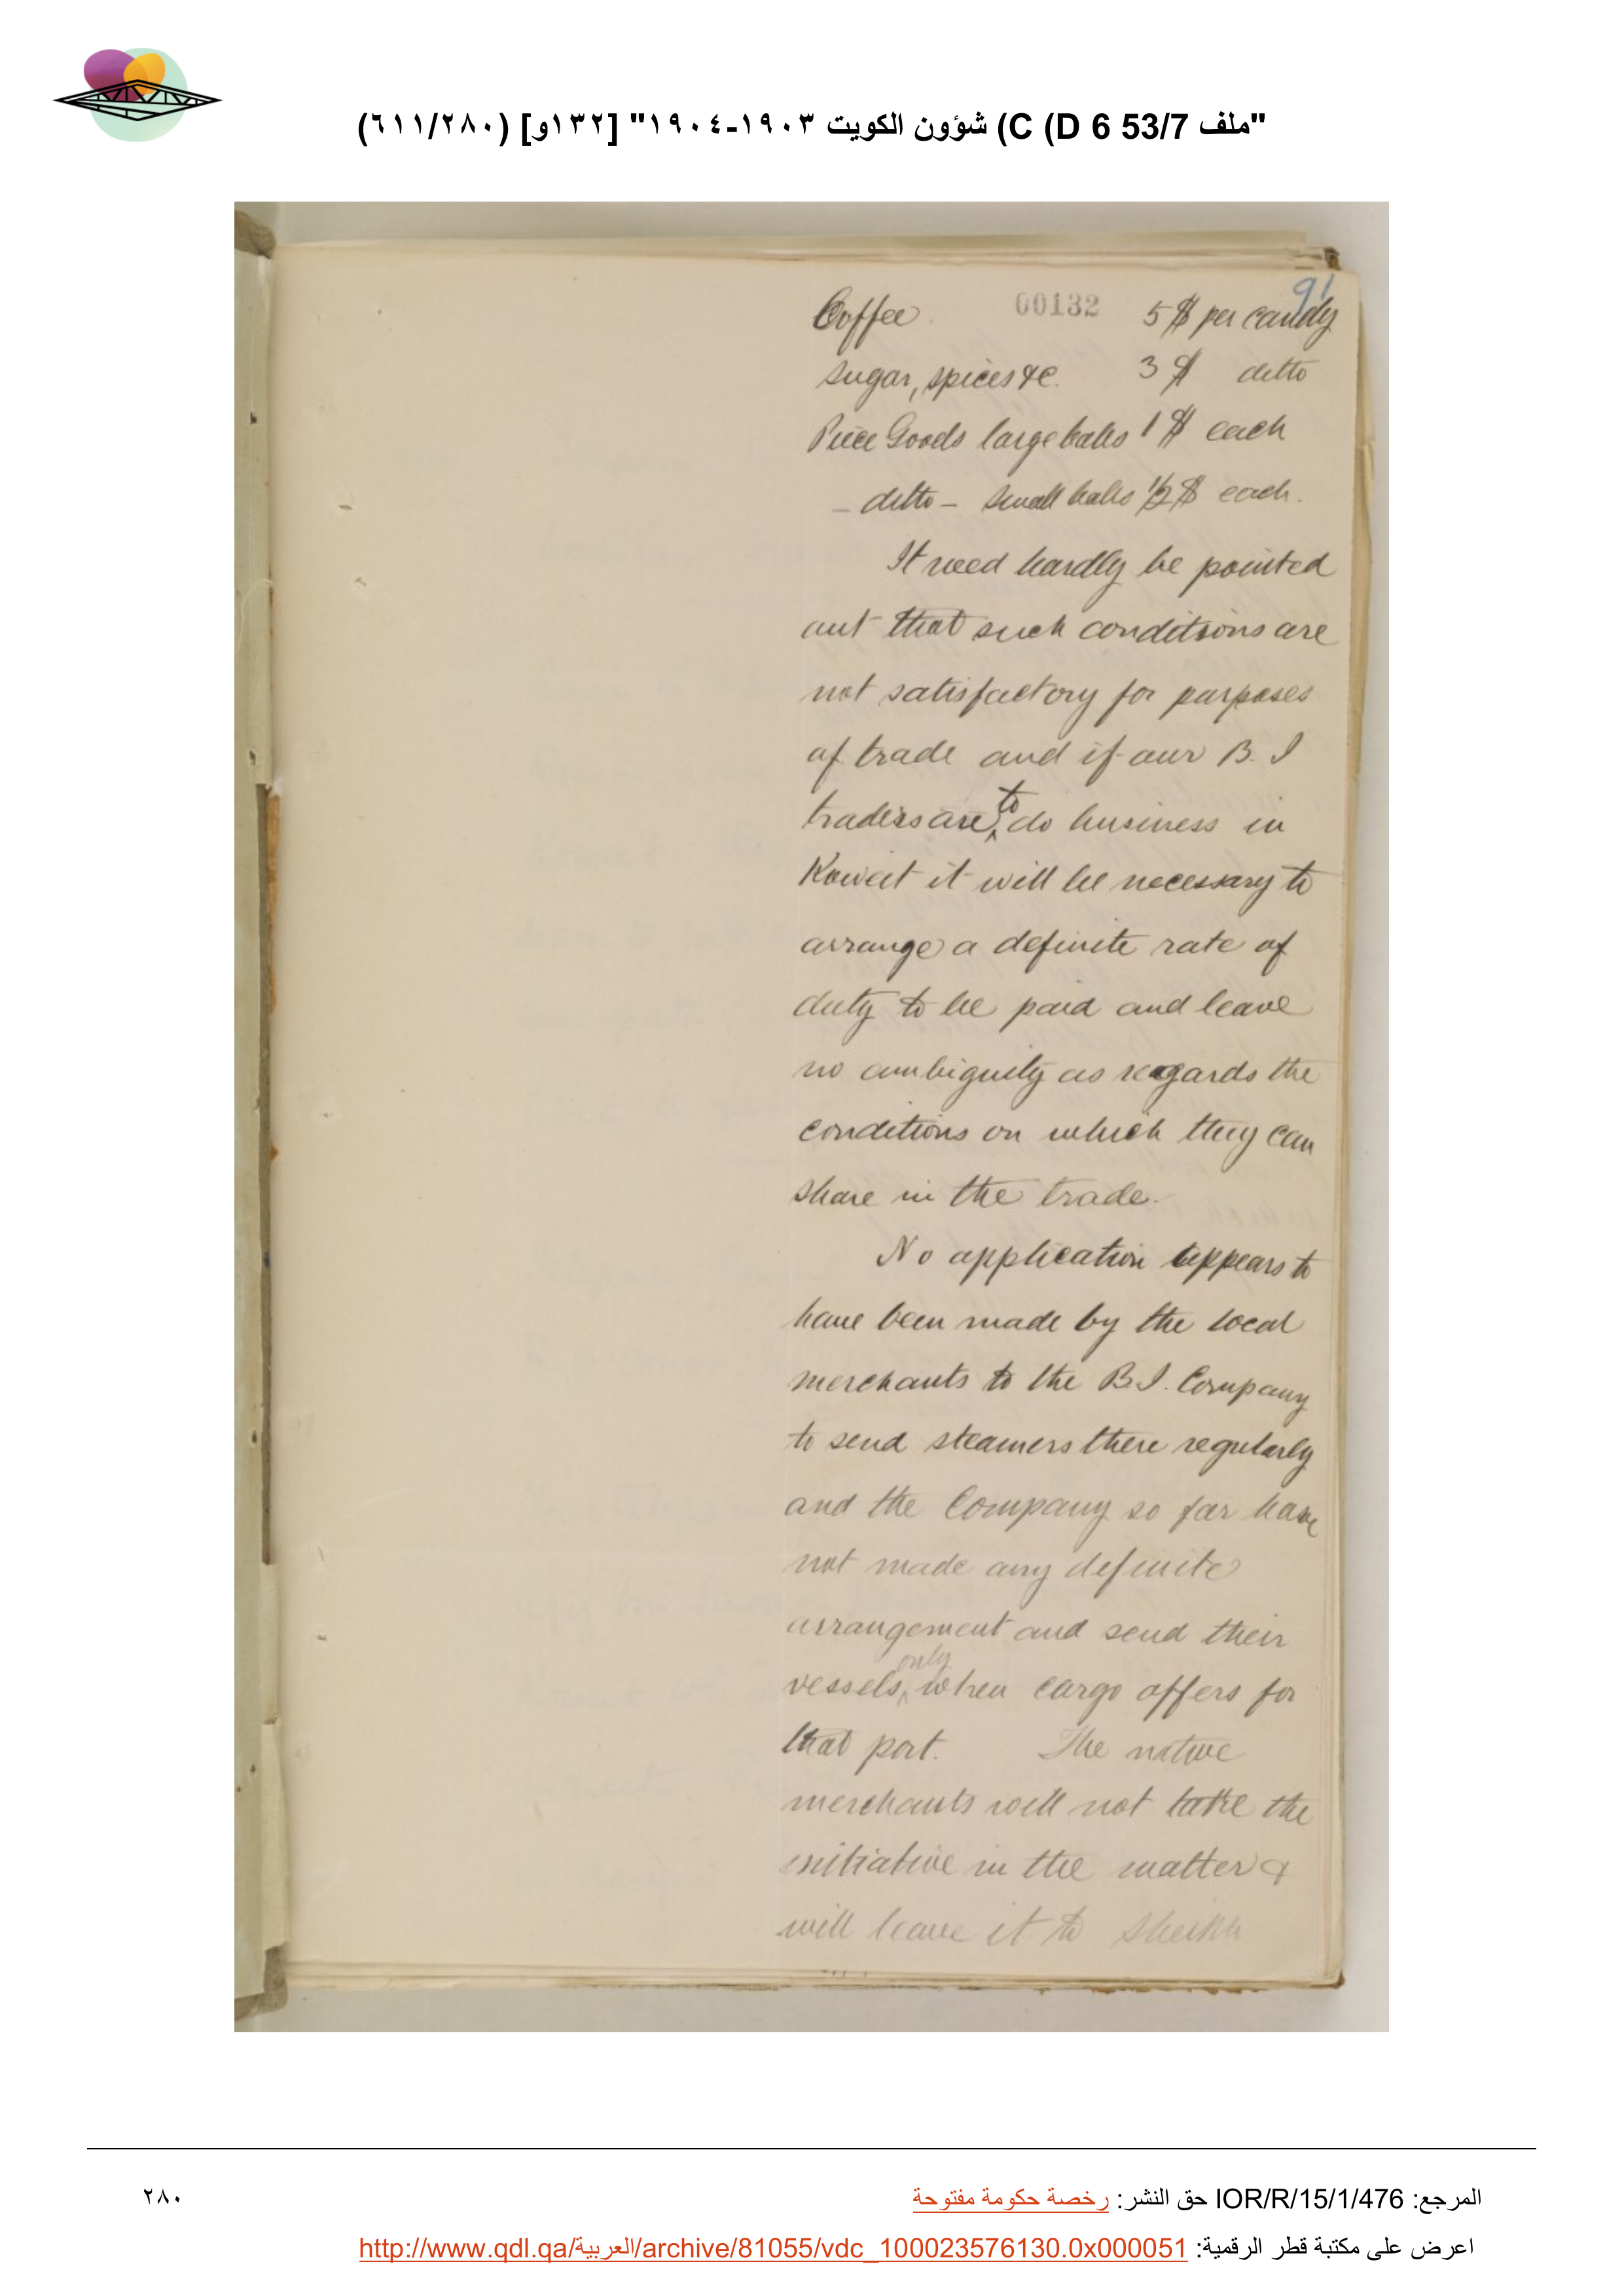 "ملف 53/7 C (D 6) شؤون الكويت ١٩٠٣-١٩٠٤" [١٣٢و] (٦١١/٢٨٠)
91
00132
Coffee 5 $ per candy
Sugar, spices &c. 3 $ ditto
Piece Goods large bales 1 $ each
- ditto - small bales ½ $ each.
It need hardly be pointed
out that such conditions are
not satisfactory for purposes
of trade and if our B. I
traders are to do business in
Koweit it will be necessary to
arrange a definite rate of
duty to be paid and leave
no ambiguity as regards the
conditions on which they can
share in the trade.
No application appears to
have been made by the local
merchants to the B.I. Company
to send steamers there regularly
and the Company so far have
not made any definite
arrangement and send their
vessels only when cargo offers for
that port. The native
merchants will not take the
initiative in the matter &
will leave it to Sheikh
المرجع: IOR/R/15/1/476 حق النشر: رخصة حكومة مفتوحة
٢٨٠
اعرض على مكتبة قطر الرقمية: http://www.qdl.qa/العربية/archive/81055/vdc_100023576130.0x000051